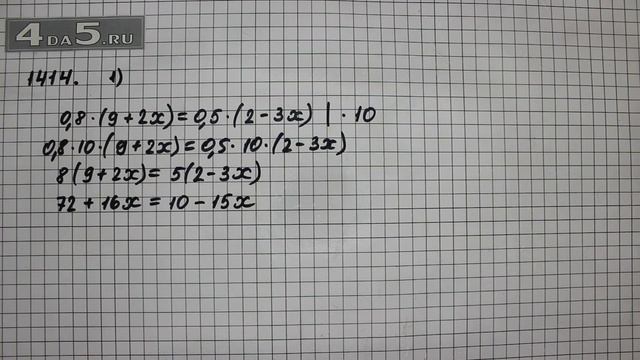 4DA5.RU
1414. 1)
0,8·(9+2x)=0,5·(2-3x) | ·10
0,8·10·(9+2x)=0,5·10·(2-3x)
8(9+2x)=5(2-3x)
72+16x=10-15x